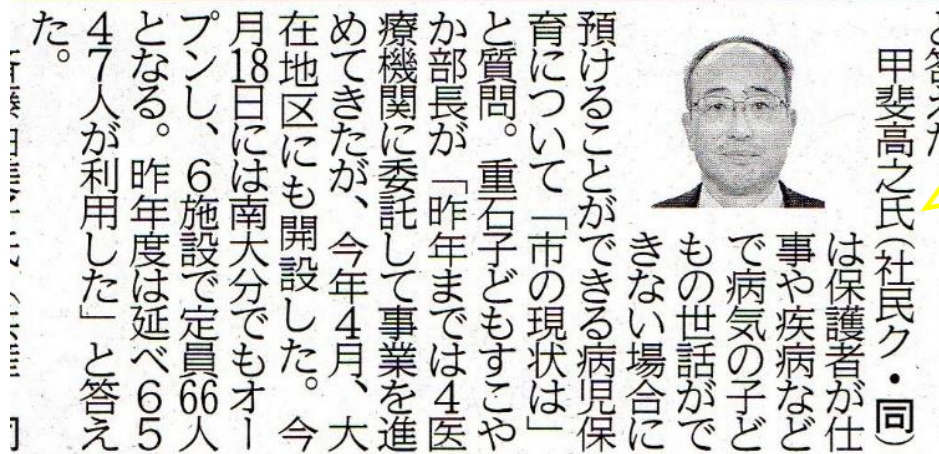 甲斐高之氏(社民ク・同)
は保護者が仕
事や疾病など
で病気の子ど
もの世話がで
きない場合に
預けることができる病児保
育について「市の現状は」
と質問。重石子どもすこや
か部長が「昨年までは４医
療機関に委託して事業を進
めてきたが、今年４月、大
在地区にも開設した。今
月18日には南大分でもオー
プンし、６施設で定員66人
となる。昨年度は延べ６５
４７人が利用した」と答え
た。